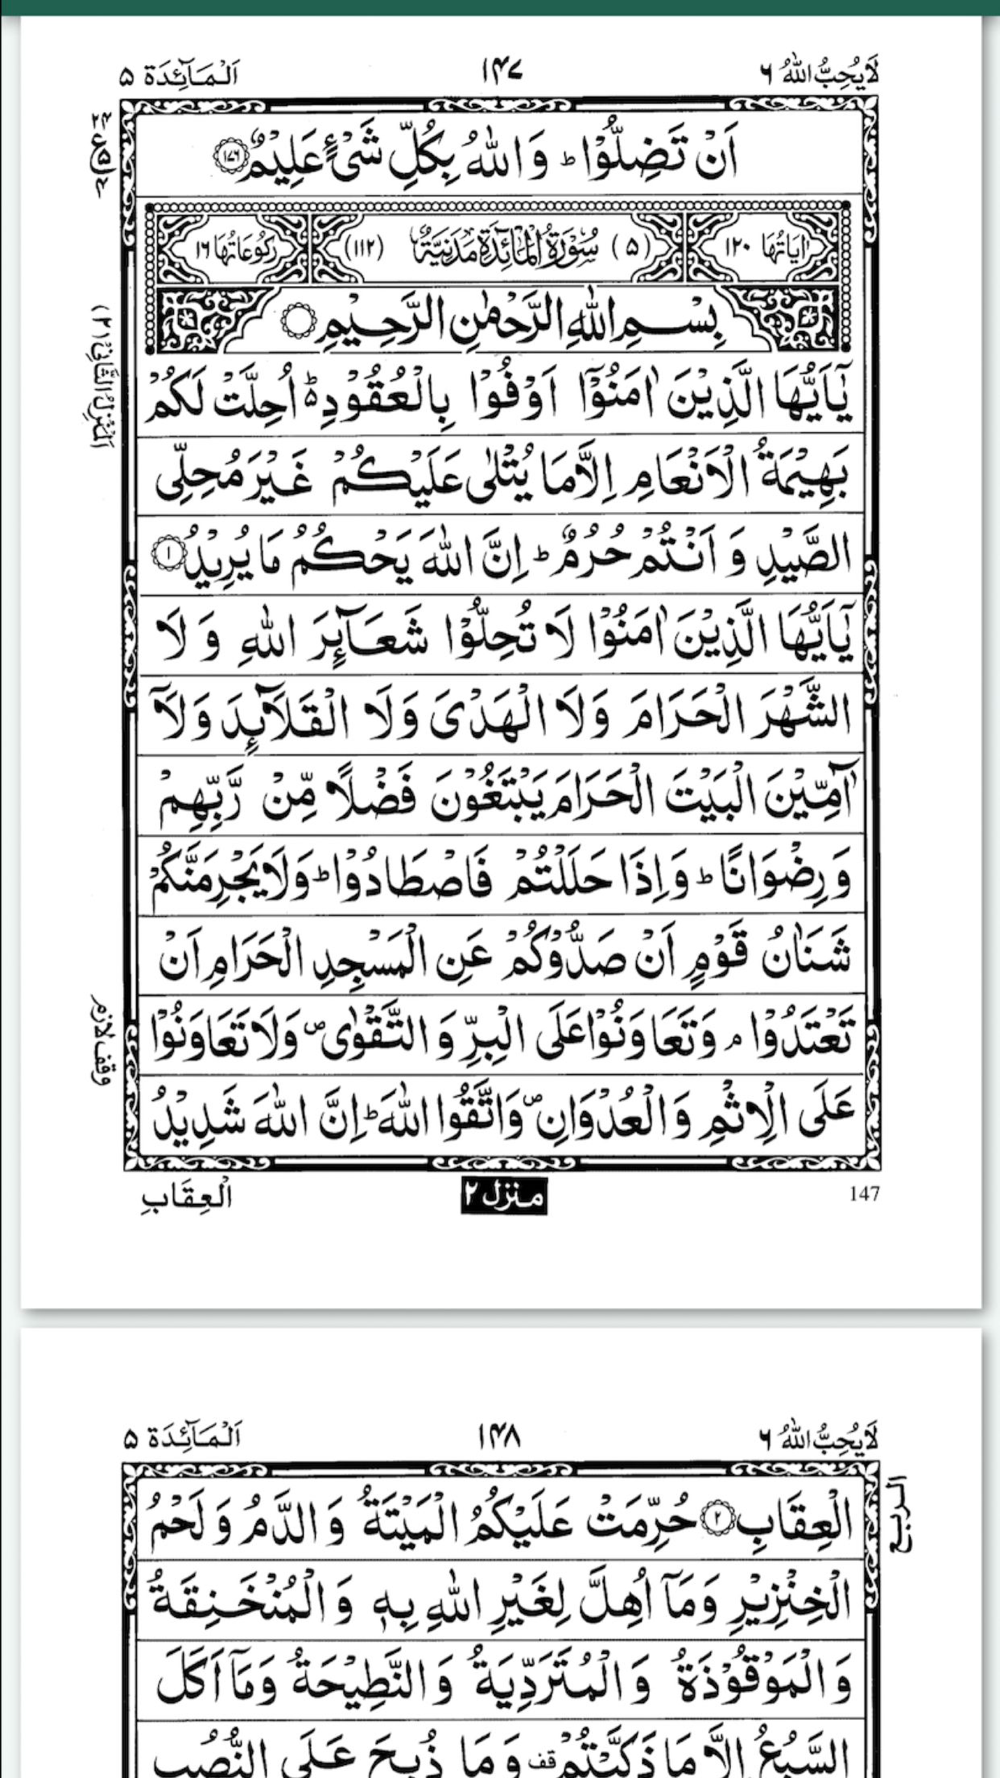 لَا یُحِبُّ اللّٰهُ ۶
۱۴۷
اَلْمَآئِدَة ۵
اَنْ تَضِلُّوْا ؕ وَ اللّٰهُ بِكُلِّ شَیْءٍ عَلِیْمٌ ﴿۱۷۶﴾
اٰیَاتُهَا ۱۲۰
(۵) سُوْرَةُ الْمَآئِدَةِ مَدَنِیَّةٌ (۱۱۲)
رُكُوْعَاتُهَا ۱۶
بِسْمِ اللّٰهِ الرَّحْمٰنِ الرَّحِیْمِ
یٰۤاَیُّهَا الَّذِیْنَ اٰمَنُوْۤا اَوْفُوْا بِالْعُقُوْدِ ؕ۬ اُحِلَّتْ لَكُمْ
بَهِیْمَةُ الْاَنْعَامِ اِلَّا مَا یُتْلٰی عَلَیْكُمْ غَیْرَ مُحِلِّی
الصَّیْدِ وَ اَنْتُمْ حُرُمٌ ؕ اِنَّ اللّٰهَ یَحْكُمُ مَا یُرِیْدُ ﴿۱﴾
یٰۤاَیُّهَا الَّذِیْنَ اٰمَنُوْا لَا تُحِلُّوْا شَعَآئِرَ اللّٰهِ وَ لَا
الشَّهْرَ الْحَرَامَ وَلَا الْهَدْیَ وَلَا الْقَلَآئِدَ وَلَاۤ
آٰمِّیْنَ الْبَیْتَ الْحَرَامَ یَبْتَغُوْنَ فَضْلًا مِّنْ رَّبِّهِمْ
وَ رِضْوَانًا ؕ وَاِذَا حَلَلْتُمْ فَاصْطَادُوْا ؕ وَلَا یَجْرِمَنَّكُمْ
شَنَاٰنُ قَوْمٍ اَنْ صَدُّوْكُمْ عَنِ الْمَسْجِدِ الْحَرَامِ اَنْ
تَعْتَدُوْا ۘ وَتَعَاوَنُوْا عَلَی الْبِرِّ وَ التَّقْوٰی ۪ وَلَا تَعَاوَنُوْا
عَلَی الْاِثْمِ وَ الْعُدْوَانِ ۪ وَاتَّقُوا اللّٰهَ ؕ اِنَّ اللّٰهَ شَدِیْدُ
اَلْمَنْزِلُ الثَّانِیْ (۲)
وقف لازم
147
منزل ۲
الْعِقَابِ
لَا یُحِبُّ اللّٰهُ ۶
۱۴۸
اَلْمَآئِدَة ۵
الربع
الْعِقَابِ ﴿۲﴾ حُرِّمَتْ عَلَیْكُمُ الْمَیْتَةُ وَ الدَّمُ وَ لَحْمُ
الْخِنْزِیْرِ وَ مَاۤ اُهِلَّ لِغَیْرِ اللّٰهِ بِهٖ وَ الْمُنْخَنِقَةُ
وَ الْمَوْقُوْذَةُ وَ الْمُتَرَدِّیَةُ وَ النَّطِیْحَةُ وَ مَاۤ اَكَلَ
السَّبُعُ اِلَّا مَا ذَكَّیْتُمْ قف وَ مَا ذُبِحَ عَلَی النُّصُبِ